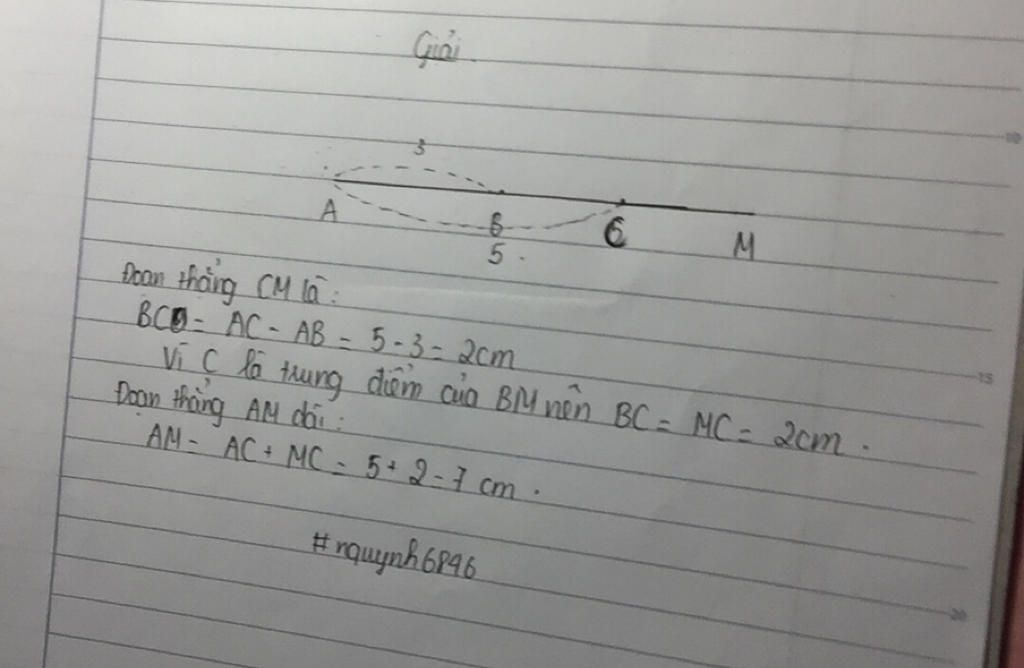 Giải.
3
A
B
C
M
5.
Đoạn thẳng CM là:
BC = AC - AB = 5 - 3 = 2cm
Vì C là trung điểm của BM nên BC = MC = 2cm.
Đoạn thẳng AM dài:
AM = AC + MC = 5 + 2 = 7 cm.
#nquynh6846
10
15
20